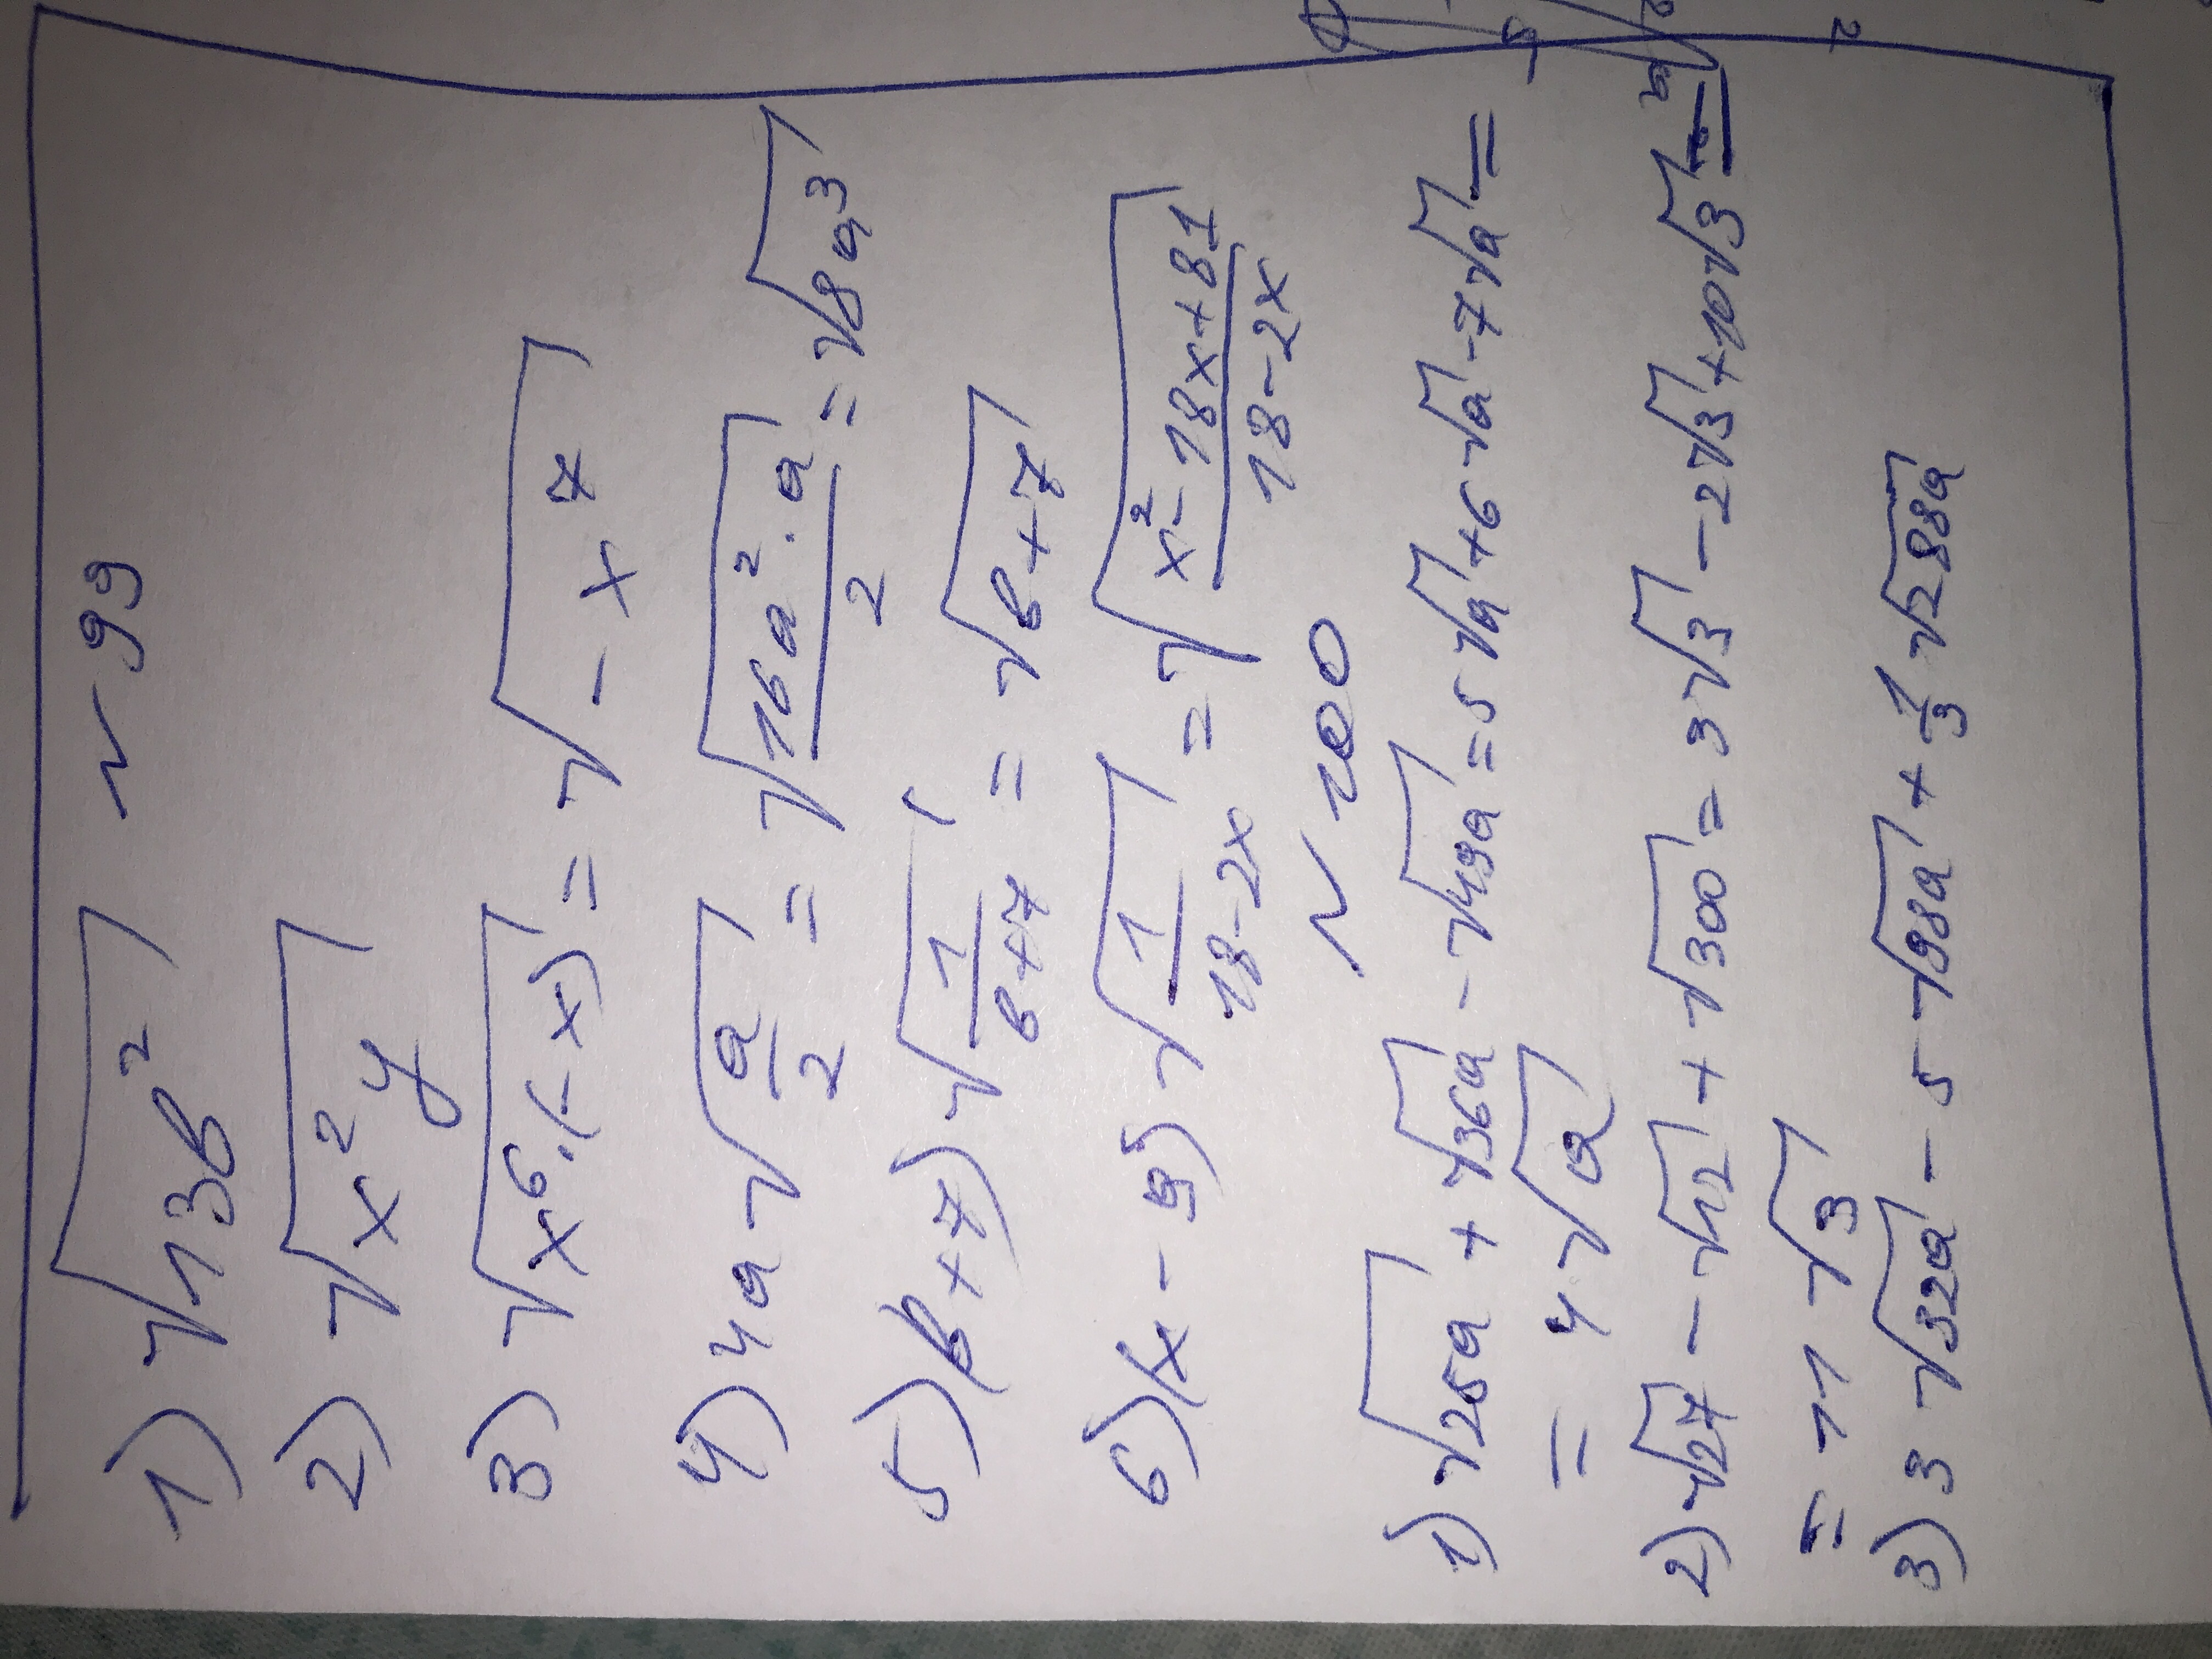 N 99
1) √13b²
2) √x²y
3) √x⁶·(-x) = √-x⁷
4) 4a √a/2 = √16a²·a/2 = √8a³
5) (b+7) √1/b+7 = √b+7
6) (x-9) √1/18-2x = √x²-18x+81/18-2x
N 100
1) √25a + √36a - √49a = 5√a + 6√a - 7√a =
= 4√a
2) √27 - √12 + √300 = 3√3 - 2√3 + 10√3 =
= 11√3
3) 3√32a - 5√98a + 1/3√288a